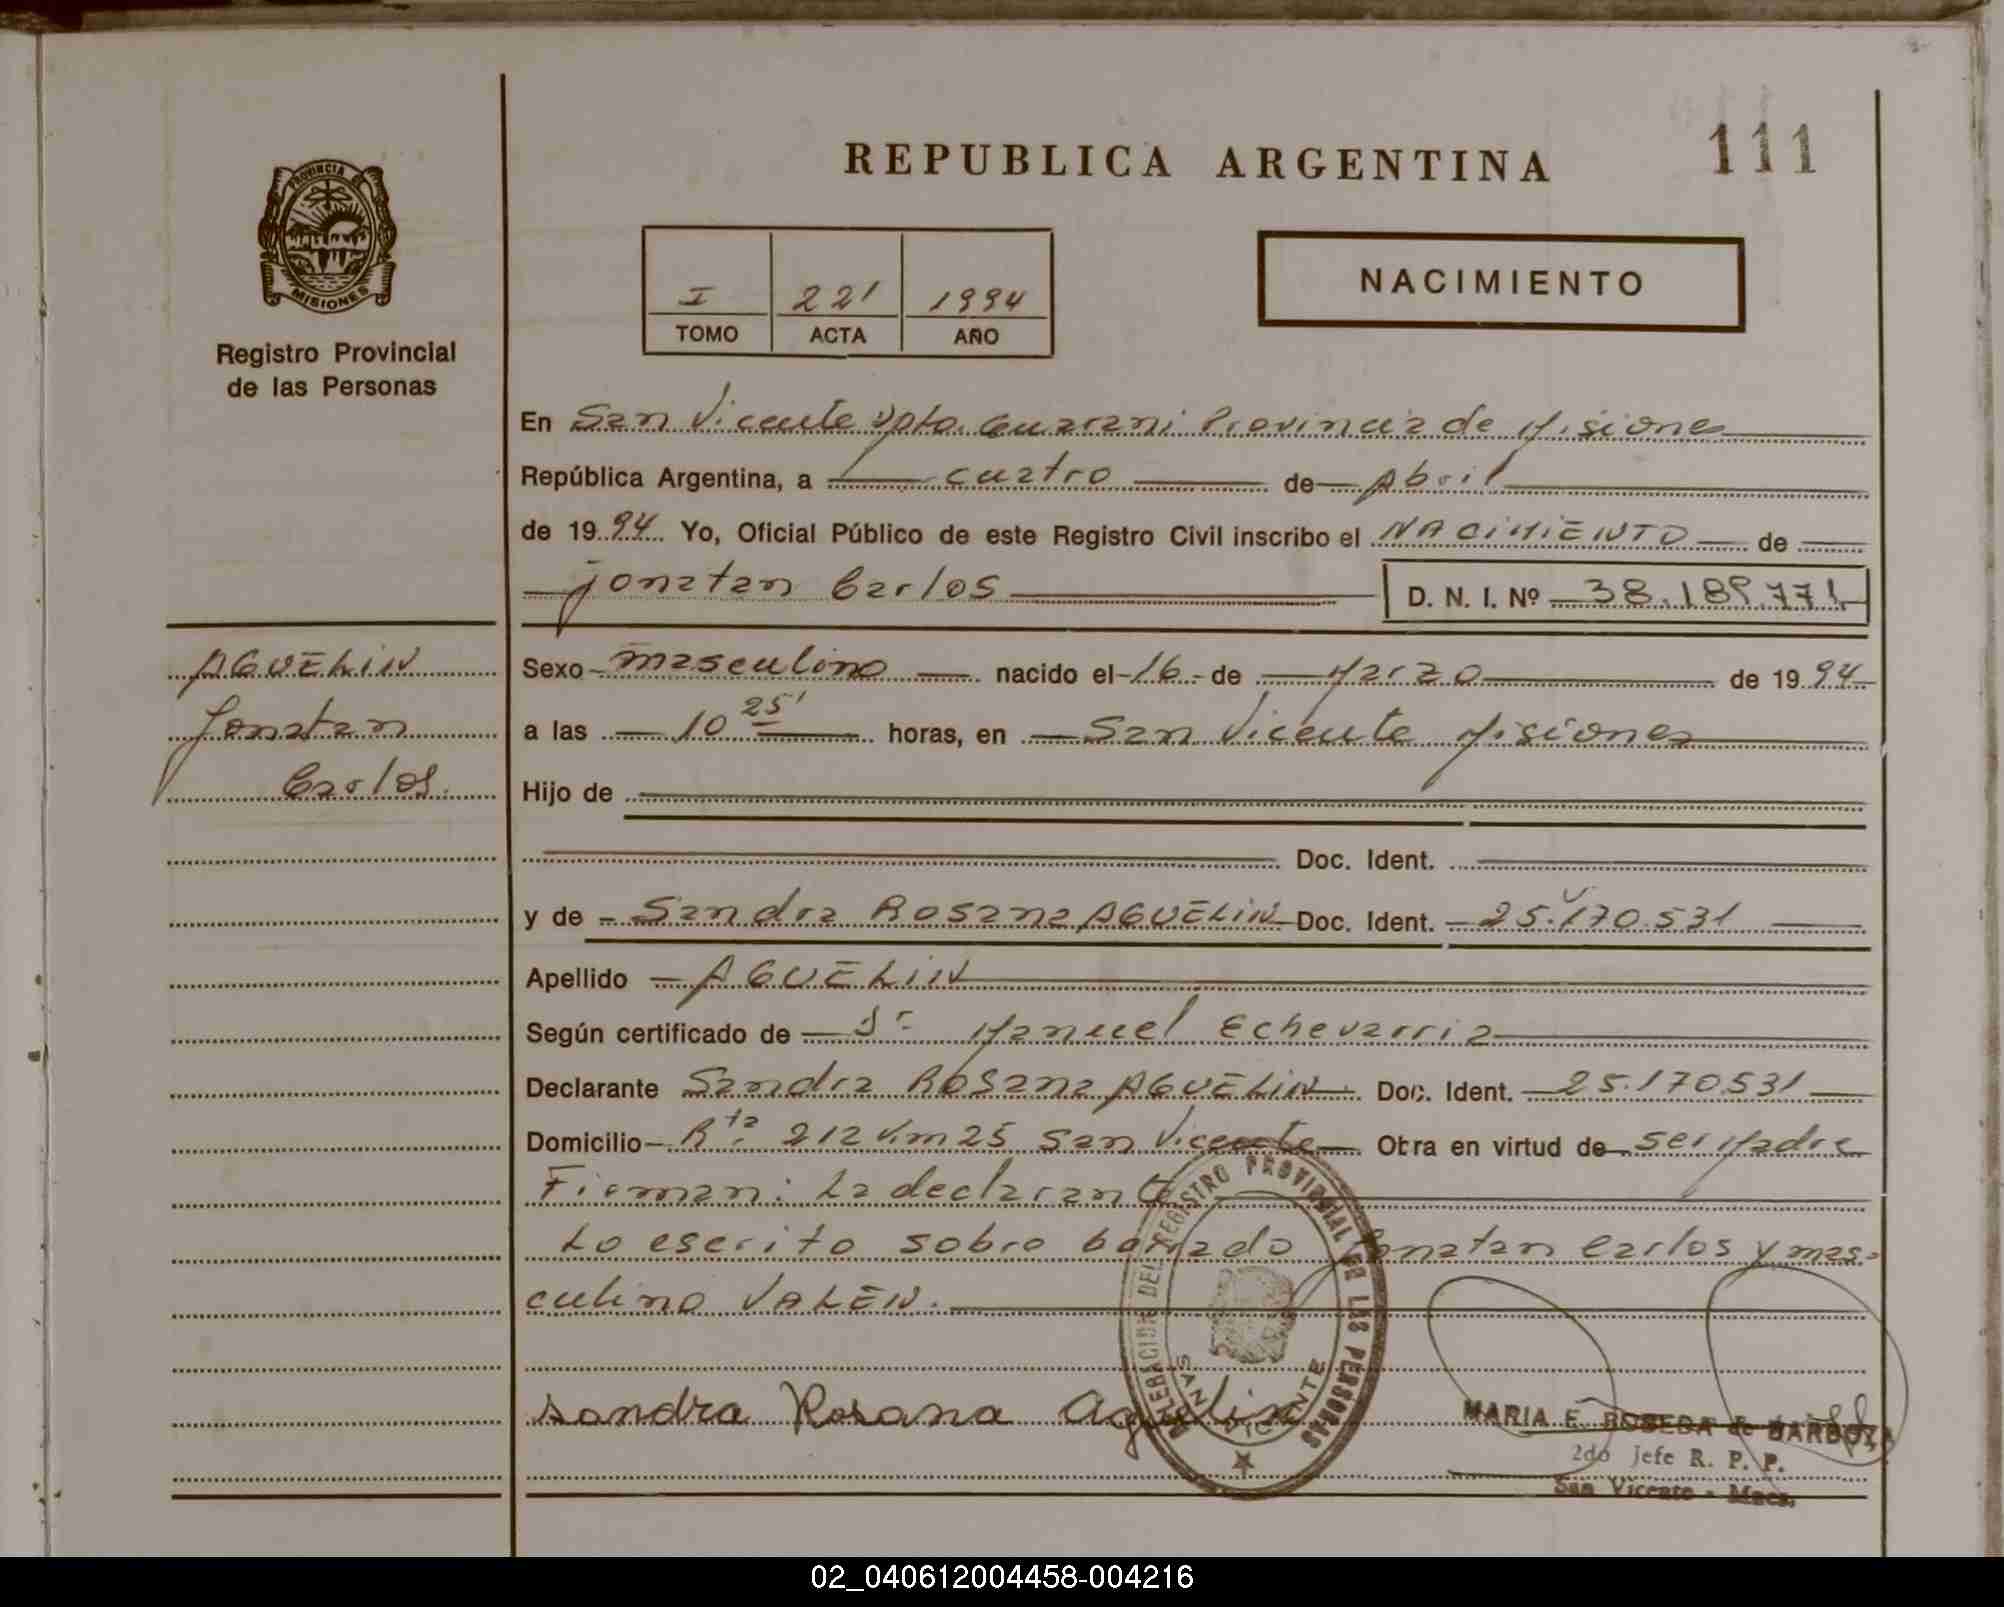 REPUBLICA ARGENTINA
111
PROVINCIA DE
MISIONES
Registro Provincial
de las Personas
I 221 1994
TOMO ACTA AÑO
NACIMIENTO
En San Vicente Dpto. Guarani Provincia de Misiones
República Argentina, a cuatro de Abril
de 1994 Yo, Oficial Público de este Registro Civil inscribo el NACIMIENTO de
Jonatan Carlos D. N. I. Nº 38.189.771
AGUELIN
Jonatan
Carlos.
Sexo masculino nacido el 16 de Marzo de 1994
a las 10 25' horas, en San Vicente Misiones
Hijo de
Doc. Ident.
y de Sandra Rosana AGUELIN Doc. Ident. 25.170.531
Apellido AGUELIN
Según certificado de Dr. Manuel Echevarria
Declarante Sandra Rosana AGUELIN. Doc. Ident. 25.170.531
Domicilio Rta. 212 Km 25 San Vicente Obra en virtud de ser Madre
Firman: La declarante
Lo escrito sobre borrado Jonatan Carlos y mas-
culino VALEN.
Sandra Rosana Aguelin
DEL REGISTRO PROVINCIAL DE LAS PERSONAS
SAN VICENTE
MARIA E. BOBEDA de BARBOZA
2do Jefe R. P. P.
San Vicente - Mnes.
02_040612004458-004216